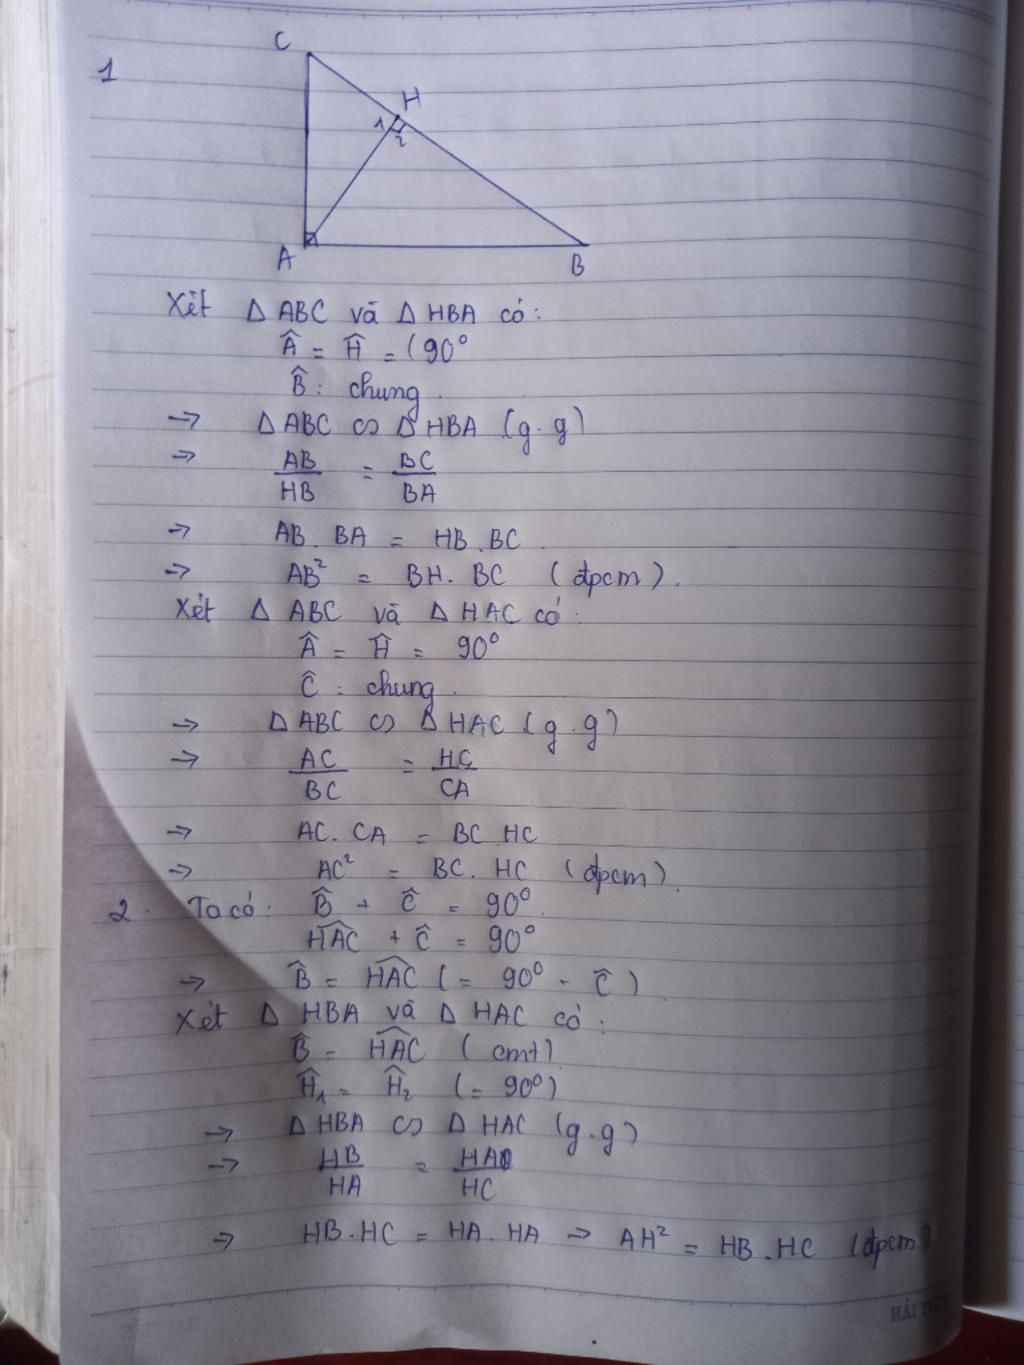 1
C
H
1
2
A
B
Xét Δ ABC và Δ HBA có:
Â = Ĥ = (90°
B̂ : chung.
→ Δ ABC ∽ Δ HBA (g.g)
→ AB/HB = BC/BA
→ AB . BA = HB . BC.
→ AB² = BH. BC (đpcm).
Xét Δ ABC và Δ HAC có:
Â = Ĥ = 90°
Ĉ : chung.
→ Δ ABC ∽ Δ HAC (g.g)
→ AC/BC = HC/CA
→ AC. CA = BC. HC
→ AC² = BC. HC (đpcm).
2. Ta có: B̂ + Ĉ = 90°.
HAC^ + Ĉ = 90°
→ B̂ = HAC^ (= 90° - Ĉ)
Xét Δ HBA và Δ HAC có:
B̂ = HAC^ (cmt)
Ĥ₁ = Ĥ₂ (= 90°)
→ Δ HBA ∽ Δ HAC (g.g)
→ HB/HA = HA/HC
→ HB.HC = HA. HA → AH² = HB.HC (đpcm)
HẢI